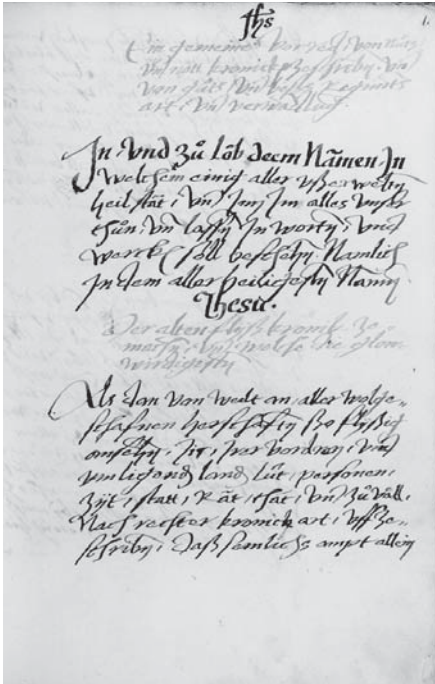 Jhs
1.
Ein gemeine vorred, von nutz
vnd
von art, vnd verwaltung.
In, vnd zů lob deem Namen, In
welchem einig aller vßerwelten
heil stat, vnd Inn Im alles vnser
thůn, vnd lassen In worten, vnd
wercken soll beschehen. Namlich
In dem aller heiligesten Namen
Jhesu.
Der alten flyß kronik ze
machen, vnd welche die
wirdigisten
Als dan von welt an, aller wolge-
schafnen herschaften so flyssig
ansehen, Ir, Irer vordren, vnd
vmligend land, lüt, personen,
Zyt, statt, Rat, that, vnd zůväll,
Nach rechter kronick art, vffze-
schriben, daß semlichs ampt allein